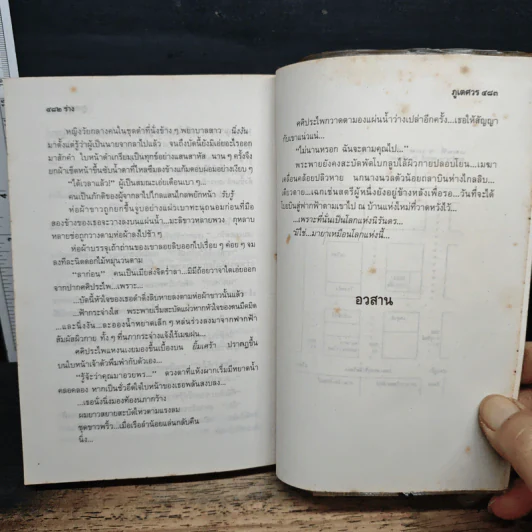 ๔๘๒ ช่าง
หญิงวัยกลางคนในชุดดำที่นั่งข้าง ๆ พยาบาลสาว นิ่งงัน
มาตั้งแต่รู้ว่าผู้เป็นนายจากลาไปแล้ว จนถึงบัดนี้ยังมิเอ่ยอะไรออก
มาสักคำ ใบหน้าดำเกรียมเป็นทุกข์อย่างแสนสาหัส นาน ๆ ครั้งจึง
ยกผ้าเช็ดหน้าขึ้นซับน้ำตาที่ไหลซึมลงข้างแก้มตอบผอมอย่างเงียบ ๆ
"ได้เวลาแล้ว" ผู้เป็นสมณะเอ่ยเตือนเบา ๆ...
คนเป็นภักดีของผู้จากลาไปไกลแสนไกลพยักหน้า รับรู้
ห่อผ้าขาวถูกยกขึ้นจูบอย่างแผ่วเบาทะนุถนอมก่อนที่มือ
สองข้างของเธอจะวางลงบนแผ่นน้ำ...มะลิขาวหลายพวง กุหลาบ
หลายช่อถูกวางตามห่อผ้าลงไปช้า ๆ
ห่อผ้าบรรจุเถ้าถ่านของเขาลอยลิบออกไปเรื่อย ๆ ค่อย ๆ จม
ลงทีละนิดดอกไม้หมุนวนตาม
"ลาก่อน" คนเป็นเมียส่งจิตร่ำลา...มิมีถ้อยวาจาใดเอ่ยออก
จากปากคติประไพ...เพราะ...
...บัดนี้หัวใจของเธอดำดิ่งลิบหายลงตามห่อผ้าขาวนั้นแล้ว
...ฟ้ากระจ่างใส พระพายเริ่มสะบัดแผ่วหากหัวใจของตนมืดมิด
...และนิ่งงัน...ละอองน้ำหยาดเล็ก ๆ หล่นร่วงลงมาจากฟากฟ้า
สัมผัสผิวกาย ทั้ง ๆ ที่นภากระจ่างแจ้งไร้เมฆฝน...
คติประไพแหงนเงยมองขึ้นเบื้องบน ยิ้มเศร้า ปรากฏขึ้น
บนใบหน้าเจ้าตัวพึมพำกับตัวเอง...
"รู้จ้ะว่าคุณมาอวยพร..." ดวงตาที่แห้งผากเริ่มมีหยาดน้ำ
คลอคลอง หากเป็นชั่วอึดใจใบหน้าของเธอพลันสงบลง...
...เธอนั่งนิ่งมองท้องนภากว้าง
ผมยาวสยายสะบัดไหวตามแรงลม
ชุดขาวพริ้ว...เมื่อเรือลำน้อยแล่นกลับคืน
นิ่ง...
ภูเตศวร ๔๘๓
คติประไพกวาดตามองแผ่นน้ำว่างเปล่าอีกครั้ง...เธอให้สัญญา
กับเขาแน่วแน่...
"ไม่นานหรอก ฉันจะตามคุณไป..."
พระพายยังคงสะบัดพัดโบกลูบไล้ผิวกายปลอบโยน...เมฆา
เคลื่อนคล้อยปลิวหาย นกนางนวลตัวน้อยถลาบินห่างไกลลิบ...
...เฉกเช่นสตรีผู้หนึ่งยังอยู่ข้างหลังเพื่อรอ...วันที่จะได้
บินสู่ฟากฟ้าตามเขาไป ณ บ้านแห่งใหม่ที่วาดหวังไว้...
...เพราะที่นั่นเป็นโลกแห่งนิรันดร...
มิใช่...มายาเหมือนโลกแห่งนี้...
อวสาน